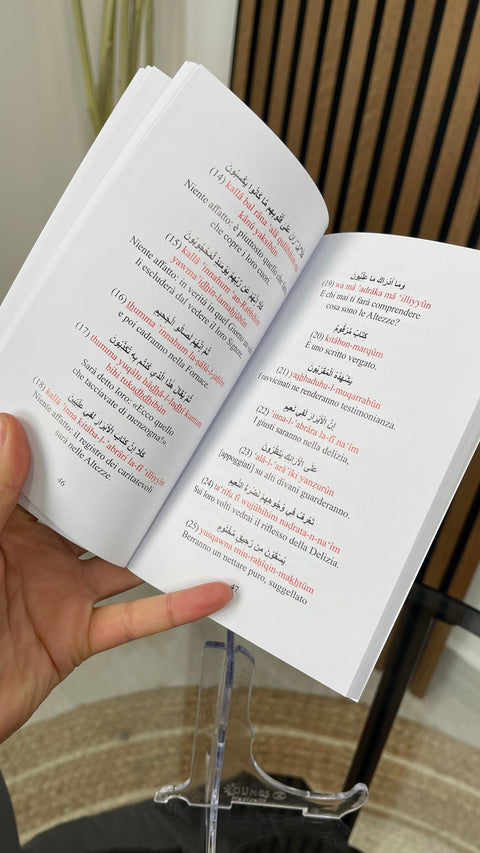 كَلَّا بَلْ رَانَ عَلَى قُلُوبِهِم مَّا كَانُوا يَكْسِبُونَ
(14) kallâ bal râna ‘alâ qulûbihim
kânû yaksibûn
Niente affatto: è piuttosto quello che
che copre i loro cuori.
(15) kallâ ’innahum ‘ar-Rabbihim
yawma’idhin-lamaḥjûbûn
Niente affatto: in verità in quel Giorno un
li escluderà dal vedere il loro Signore,
ثُمَّ إِنَّهُمْ لَصَالُو الْجَحِيمِ
(16) thumma ’innahum la-ṣâlû-l-jaḥîm
e poi cadranno nella Fornace.
ثُمَّ يُقَالُ هَذَا الَّذِي كُنتُم بِهِ تُكَذِّبُونَ
(17) thumma yuqâlu hâdhâ-l-ladhî kuntum
bihi tukadhdhibûn
Sarà detto loro: «Ecco quello
che tacciavate di menzogna!».
كَلَّا إِنَّ كِتَابَ الْأَبْرَارِ لَفِي عِلِّيِّينَ
(18) kallâ ’inna kitâba-l-’abrâri la-fî ‘illiyyîn
Niente affatto, il registro dei caritatevoli
sarà nelle Altezze.
46
وَمَا أَدْرَاكَ مَا عِلِّيُّونَ
(19) wa mâ ’adrâka mâ ‘illiyyûn
E chi mai ti farà comprendere
cosa sono le Altezze?
كِتَابٌ مَّرْقُومٌ
(20) kitâbun-marqûm
È uno scritto vergato.
يَشْهَدُهُ الْمُقَرَّبُونَ
(21) yashhaduhu-l-muqarrabûn
I ravvicinati ne renderanno testimonianza.
إِنَّ الْأَبْرَارَ لَفِي نَعِيمٍ
(22) ’inna-l-’abrâra la-fî na‘îm
I giusti saranno nella delizia,
عَلَى الْأَرَائِكِ يَنظُرُونَ
(23) ‘alâ-l-’arâ’iki yanẓurûn
[appoggiati] su alti divani guarderanno.
تَعْرِفُ فِي وُجُوهِهِمْ نَضْرَةَ النَّعِيمِ
(24) ta‘rifu fî wujûhihim naḍrata-n-na‘îm
Sui loro volti vedrai il riflesso della Delizia.
يُسْقَوْنَ مِن رَّحِيقٍ مَّخْتُومٍ
(25) yusqawna min-raḥîqin-makhtûm
Berranno un nettare puro, suggellato
47